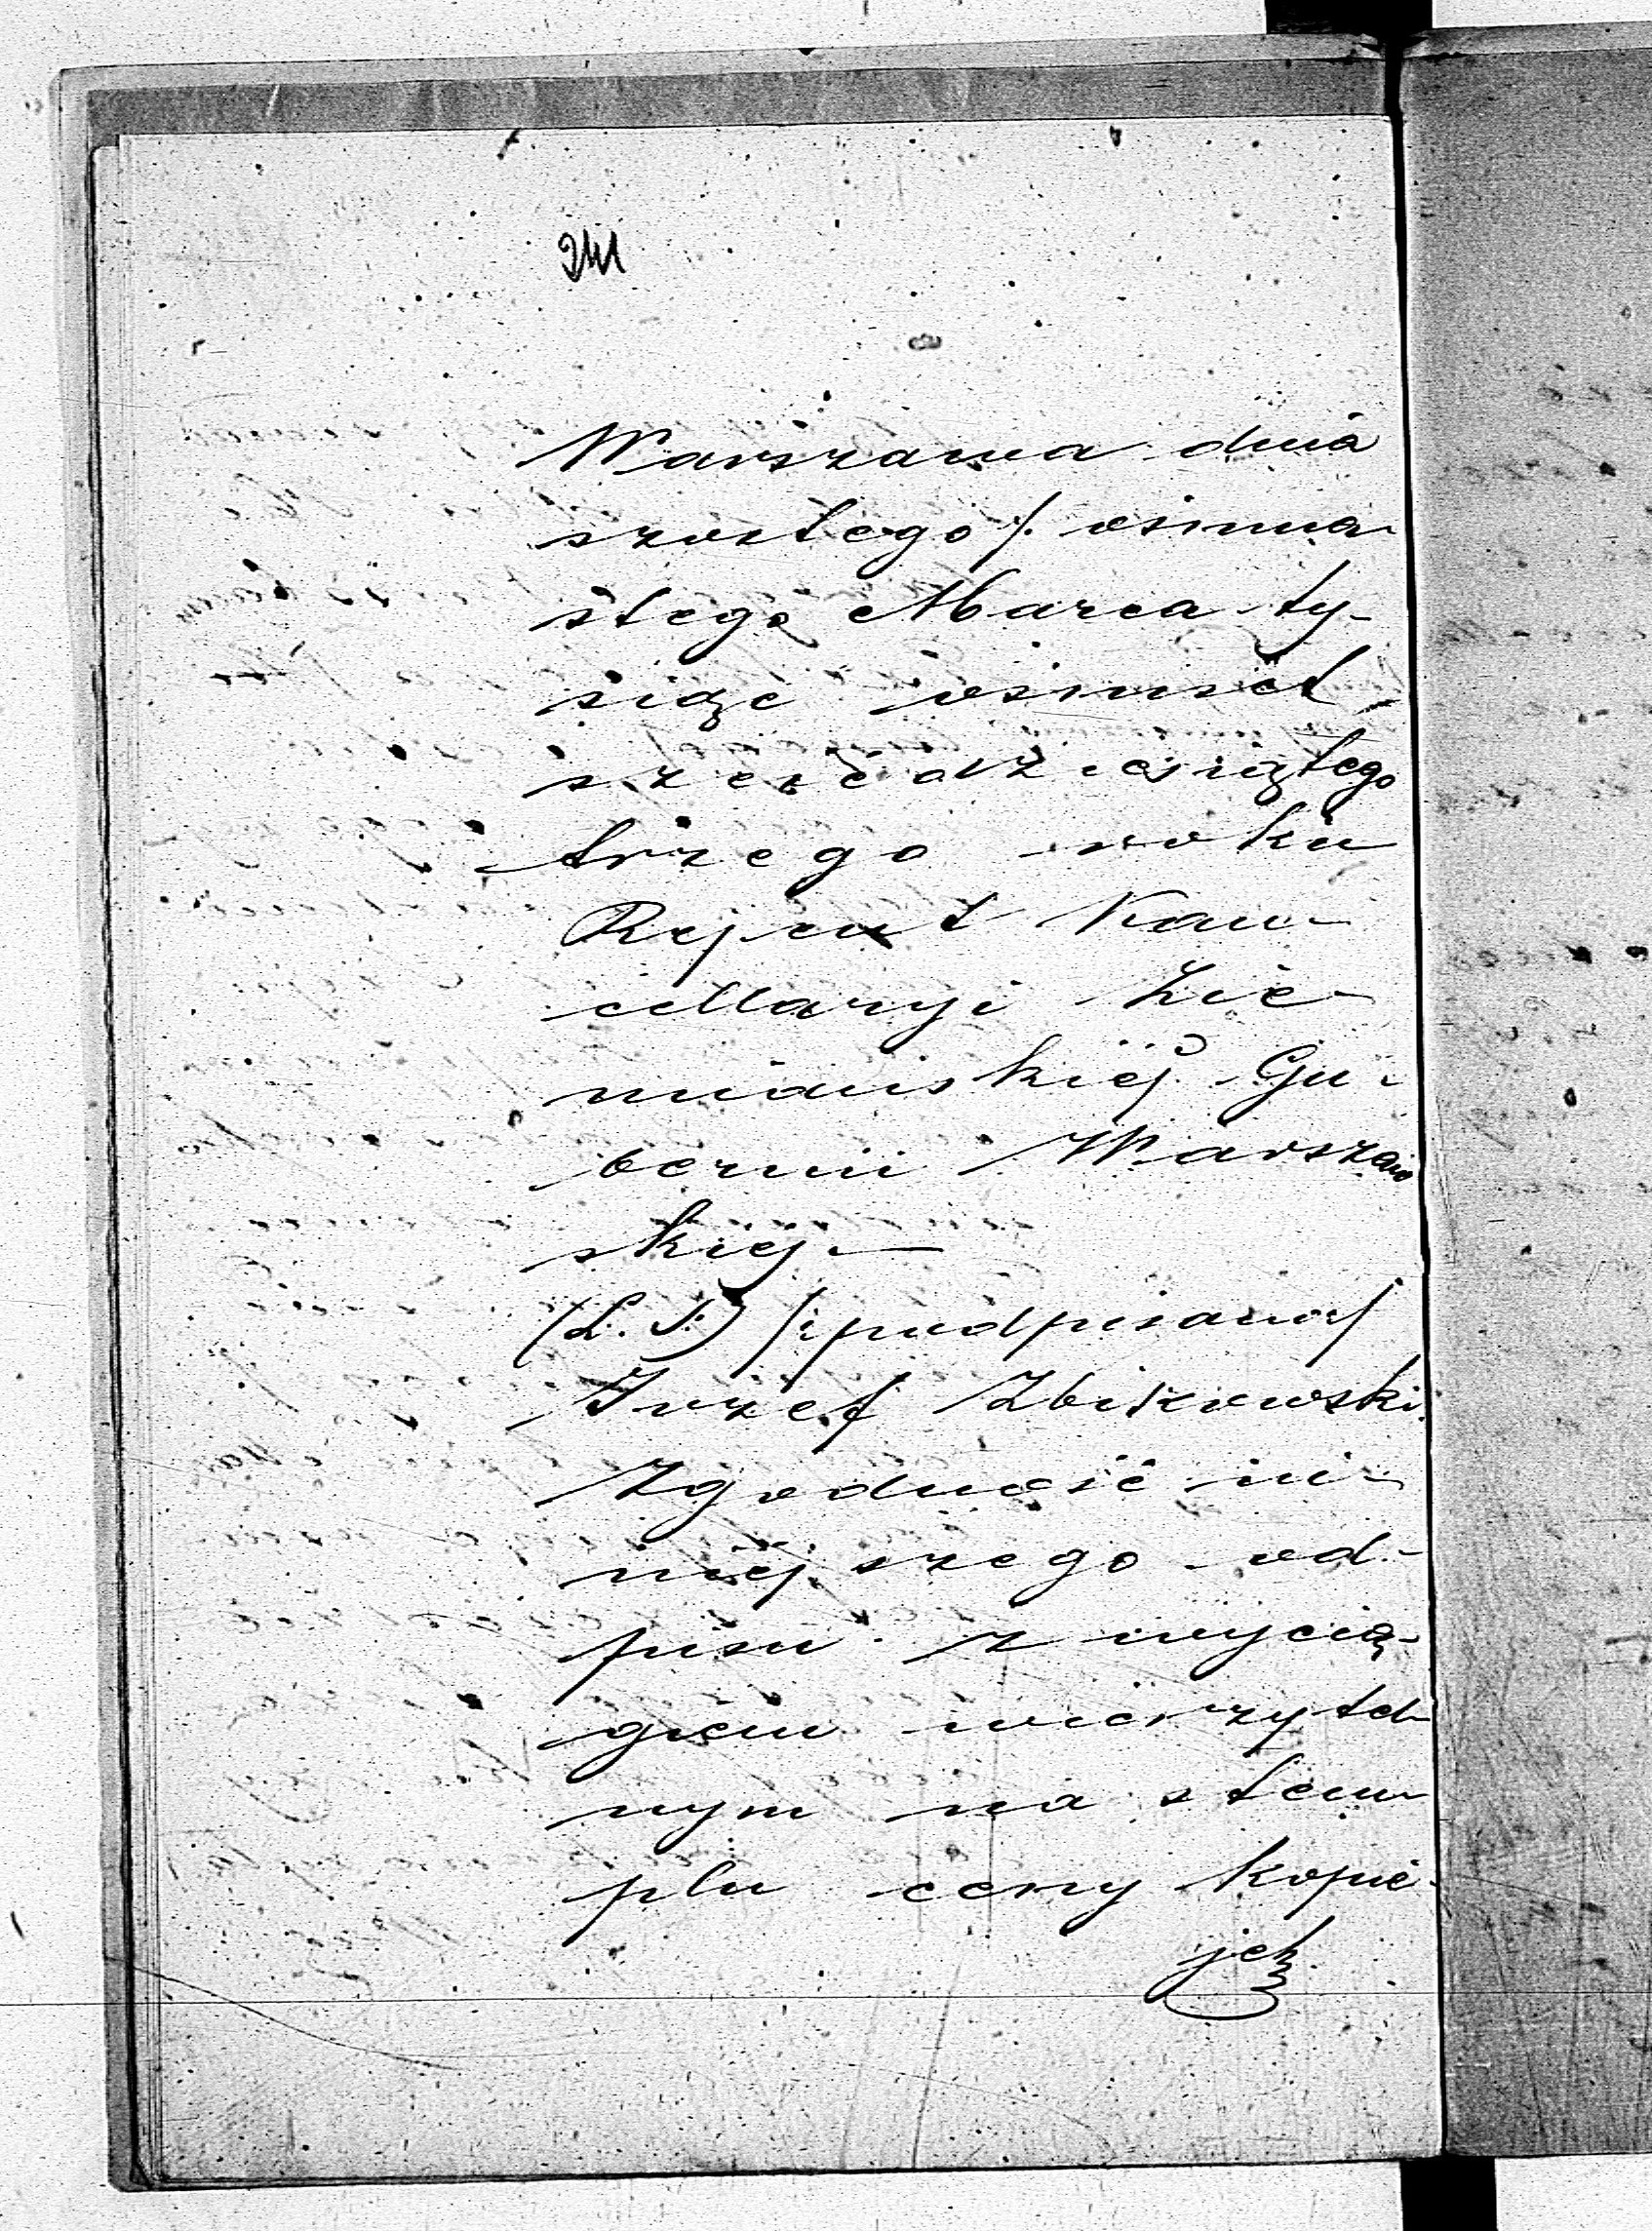 241
Warszawa dnia
szostego/. osmna-
stego Marca ty-
siąc osmset
sześćdziesiątego
trzego roku
Rejent Kan-
cellaryi Zie-
miańskiéj Gu-
bernii Warszaw
skiéj.—
(L. S.) /:podpisano/
Józef Zbikowski.
Zgodność ni-
niéjszego od-
pisu z wycią-
giem wierzytel-
nym na stem-
plu ceny kopie-
jek